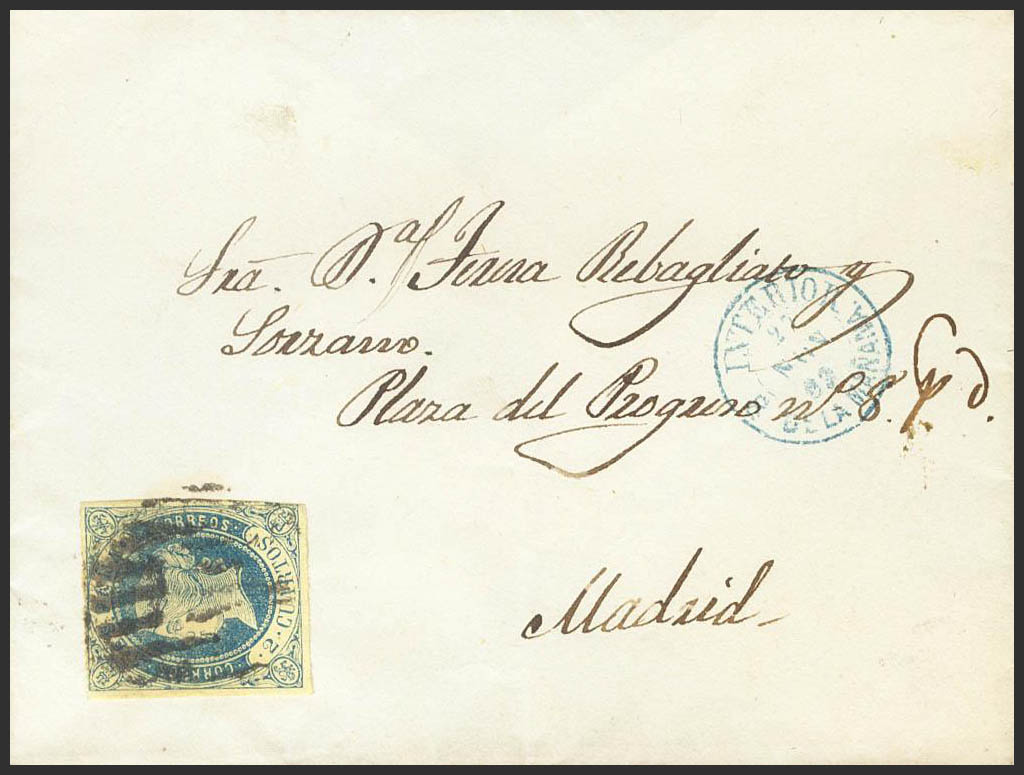 Sra. D.ª Teresa Rebagliato y
Sozzano.
Plaza del Progreso nº 8.
Madrid
INTERIOR
DE LA MAÑANA
CORREOS
2 CUARTOS